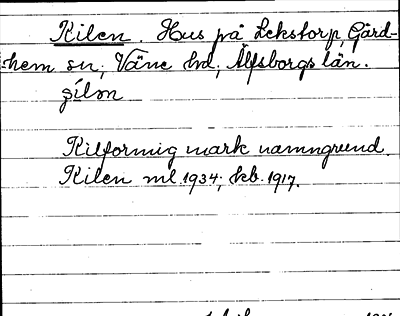 Kilen. Hus på Lekstorp, Gärd-
hem sn, Väne hd, Älfsborgs län.
Kilformig mark namngrund.
Kilen ml. 1934; kb. 1917.